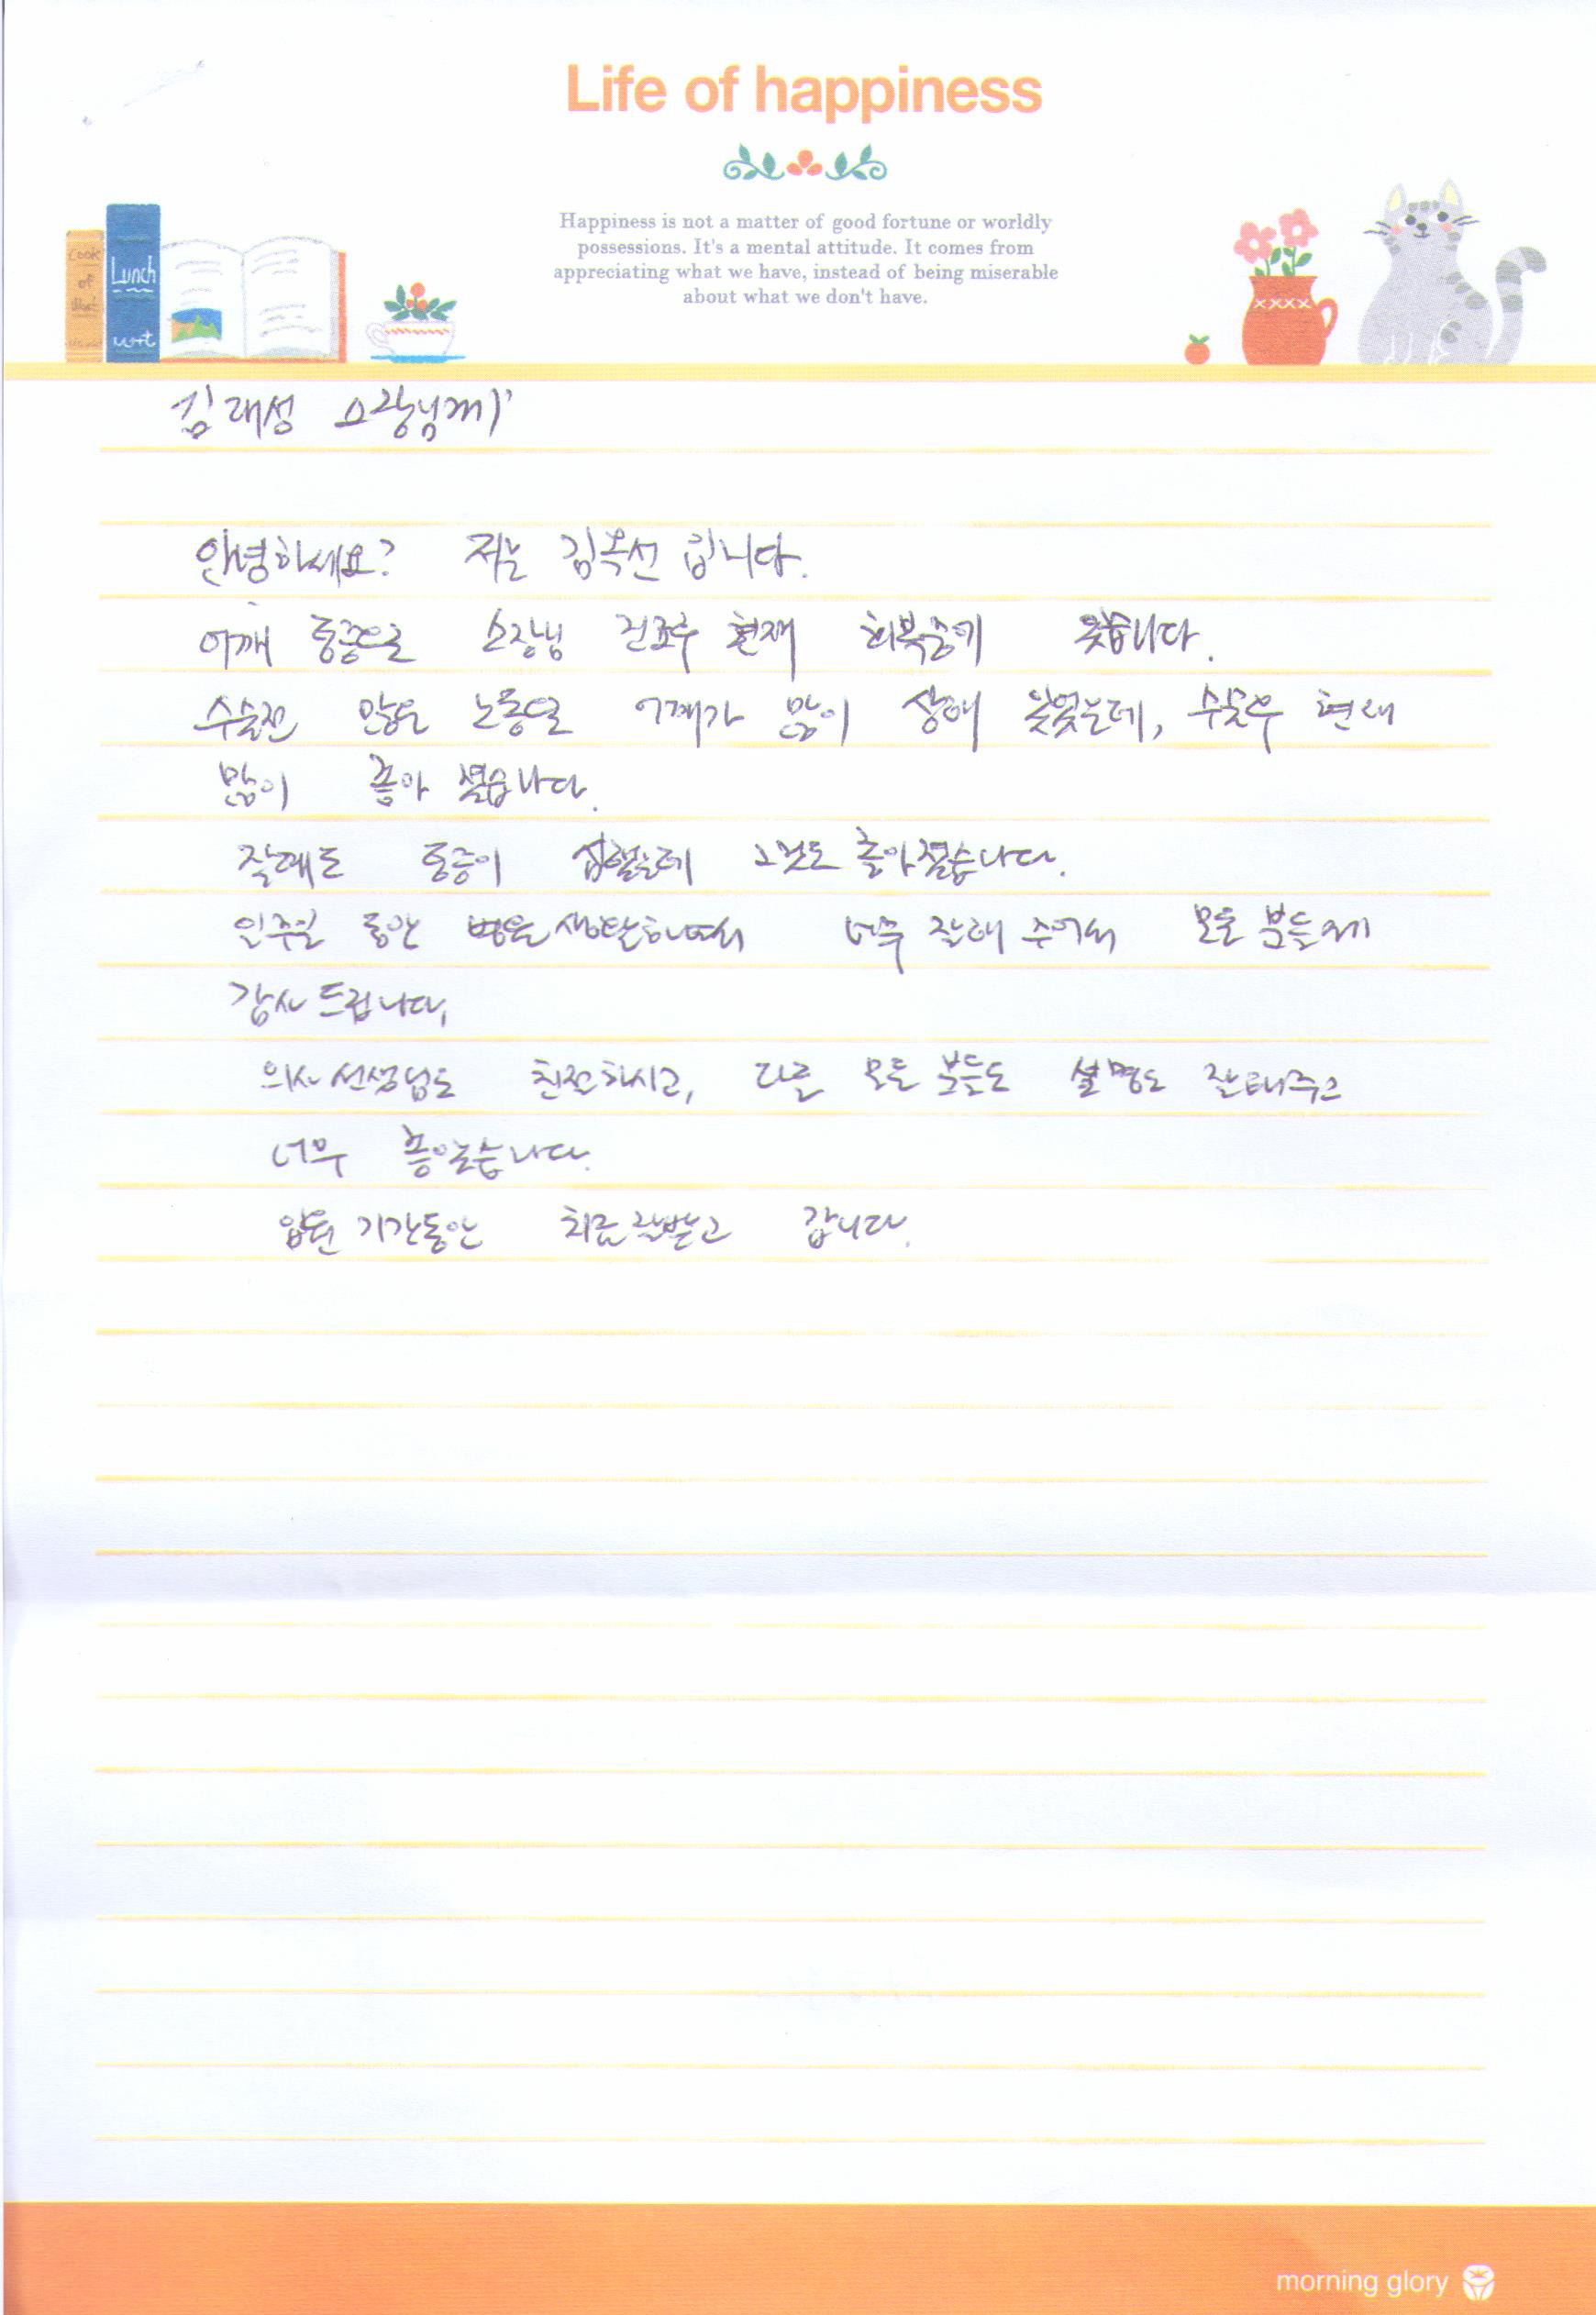 Life of happiness
Happiness is not a matter of good fortune or worldly
possessions. It's a mental attitude. It comes from
appreciating what we have, instead of being miserable
about what we don't have.
Cook
of
Lunch
김태성 소장님께
안녕하세요? 저는 김옥선 입니다.
어깨 통증으로 소장님 진료후 현재 회복중에 있습니다.
수술전 많은 노동일 어깨가 많이 상해 있었는데, 수술후 현재
많이 좋아 졌습니다.
잘때도 통증이 심했는데 그것도 좋아졌습니다.
일주일 동안 병원생활하면서 너무 잘해 주어서 모든 분들께
감사 드립니다,
의사 선생님도 친절하시고, 다른 모든 분들도 설명도 잘해주고
너무 좋았습니다.
입원 기간동안 치료 잘받고 갑니다.
morning glory